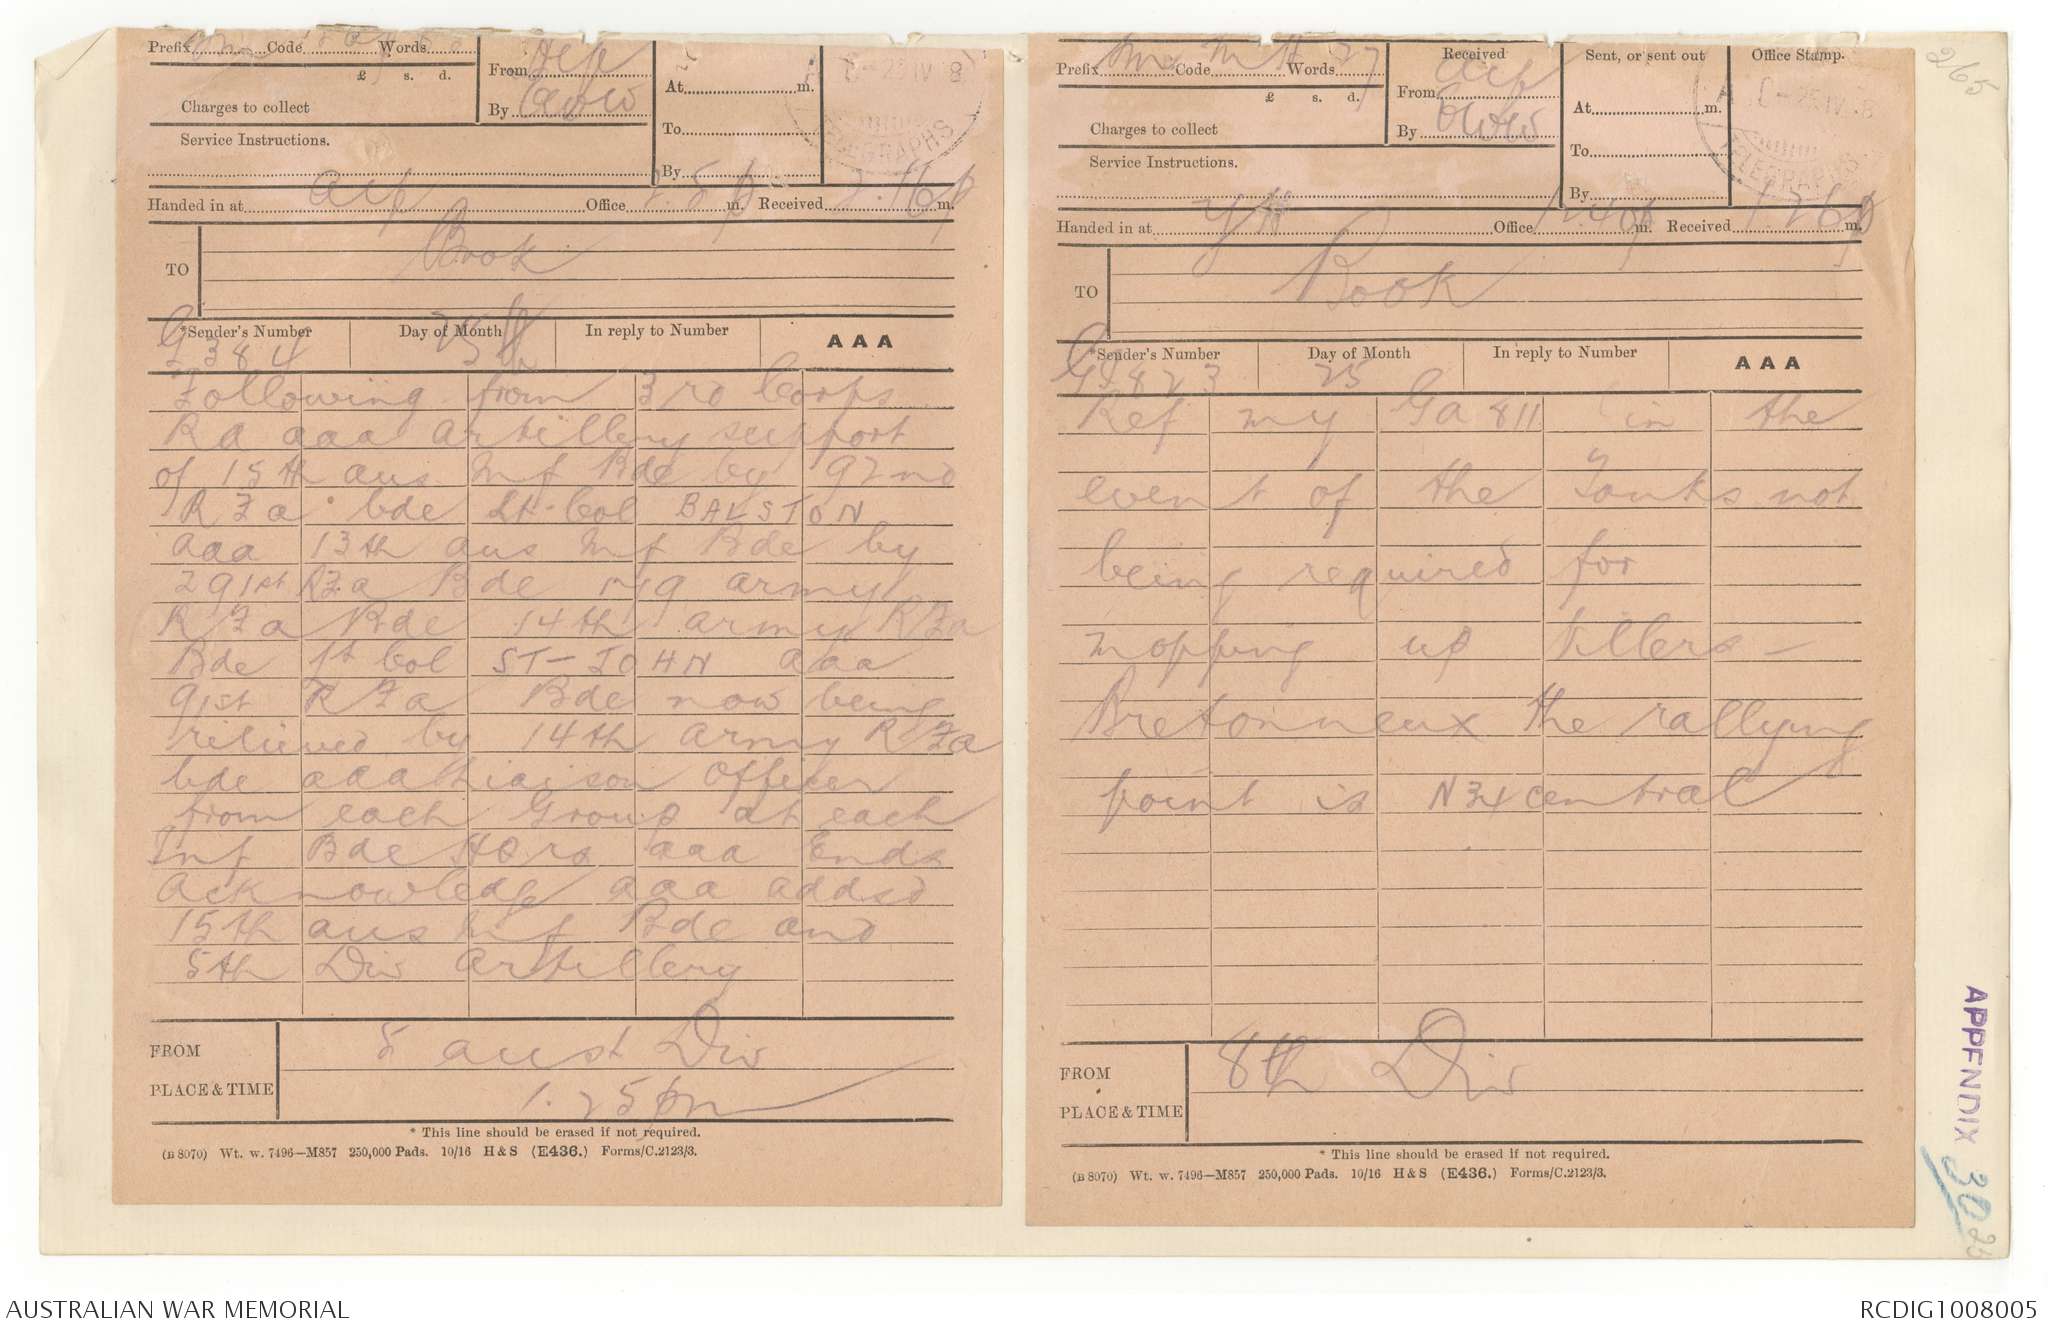 Prefix Code Words
£ s. d.
Charges to collect
Service Instructions.
From
By
At m.
To
By
TELEGRAPHS
Handed in at Office m. Received 2.16p m.
TO Book
*Sender's Number Day of Month In reply to Number AAA
G 384 25th
Following from 3rd Corps
RA aaa artillery support
of 15th aus Inf Bde by 92nd
RFa bde Lt-Col BALSTON
aaa 13th aus Inf Bde by
291st RFa Bde army
RFa Bde 14th army RFa
Bde Lt Col ST-JOHN aaa
91st RFa Bde now being
relieved by 14th army RFa
bde aaa Liaison Officer
from each Group at each
Inf Bde HQrs aaa Ends
Acknowledge aaa addsd
15th aus Inf Bde and
5th Div Artillery
FROM 5 aust Div
PLACE & TIME 1.25pm
* This line should be erased if not required.
(B 8070) Wt. w. 7496—M857 250,000 Pads. 10/16 H & S (E436.) Forms/C.2123/3.
265
Prefix Code Words 27
£ s. d.
Charges to collect
Service Instructions.
Received
From
By
Sent, or sent out
At m.
To
By
Office Stamp.
TELEGRAPHS
Handed in at Office 12.40p m. Received 1.26p m.
TO Book
*Sender's Number Day of Month In reply to Number AAA
G 823 25
Ref my Ga 811 in the
event of the Tanks not
being required for
mopping up Villers-
Bretonneux the rallying
point is N34 central
FROM 8th Div
PLACE & TIME
* This line should be erased if not required.
(B 8070) Wt. w. 7496—M857 250,000 Pads. 10/16 H & S (E436.) Forms/C.2123/3.
APPENDIX 30
AUSTRALIAN WAR MEMORIAL
RCDIG1008005